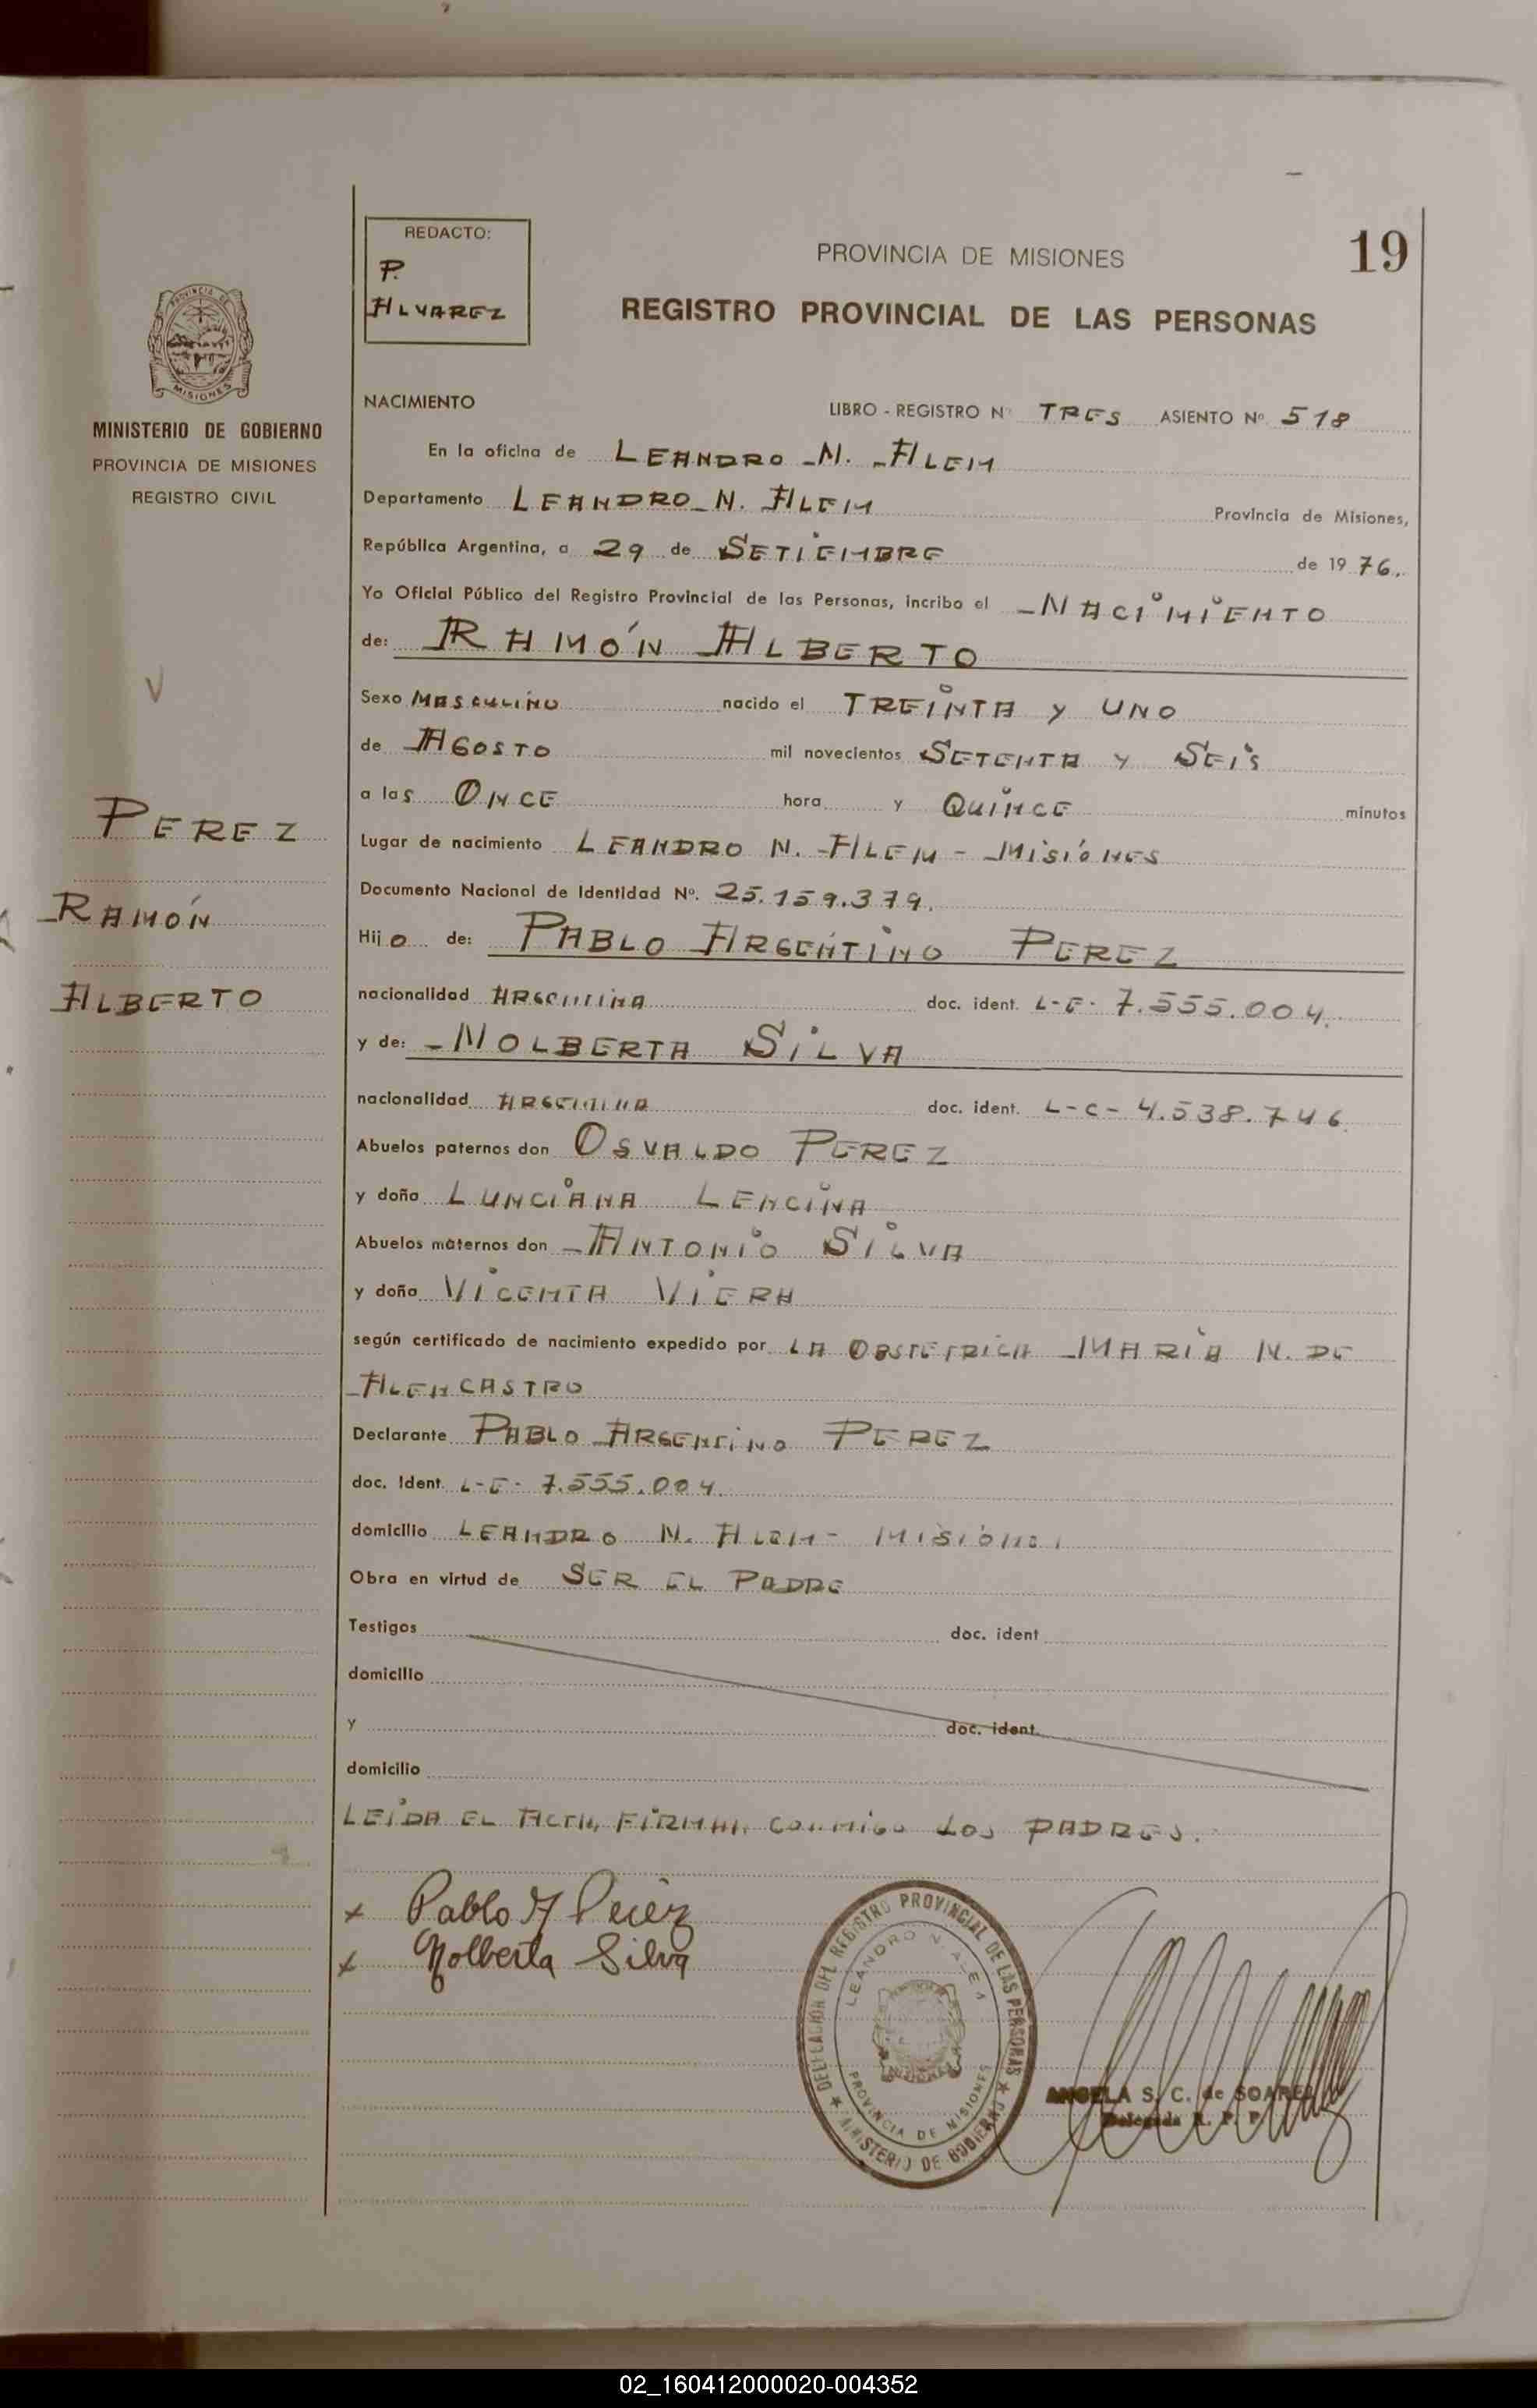 REDACTO:
P.
ALVAREZ
PROVINCIA DE MISIONES
19
REGISTRO PROVINCIAL DE LAS PERSONAS
PROVINCIA DE
MISIONES
MINISTERIO DE GOBIERNO
PROVINCIA DE MISIONES
REGISTRO CIVIL
PEREZ
RAMÓN
ALBERTO
NACIMIENTO
LIBRO - REGISTRO Nº TRES ASIENTO Nº. 518
En la oficina de LEANDRO N. ALEM
Departamento LEANDRO N. ALEM Provincia de Misiones,
República Argentina, a 29 de SETIEMBRE de 1976.
Yo Oficial Público del Registro Provincial de las Personas, incribo el NACIMIENTO
de: RAMÓN ALBERTO
Sexo MASCULINO nacido el TREINTA Y UNO
de AGOSTO mil novecientos SETENTA Y SEIS
a las ONCE hora y QUINCE minutos
Lugar de nacimiento LEANDRO N. ALEM - MISIONES
Documento Nacional de Identidad Nº. 25.159.379.
Hijo de: PABLO ARGENTINO PEREZ
nacionalidad ARGENTINA doc. ident. L-E- 7.555.004.
y de: NOLBERTA SILVA
nacionalidad ARGENTINA doc. ident. L-C- 4.538.746.
Abuelos paternos don OSVALDO PEREZ
y doña LUNCIANA LENCINA
Abuelos maternos don ANTONIO SILVA
y doña VICENTA VIERA
según certificado de nacimiento expedido por LA OBSTETRICA MARIA N. DE
ALENCASTRO
Declarante PABLO ARGENTINO PEREZ
doc. Ident. L-E- 7.555.004.
domicilio LEANDRO N. ALEM - MISIONES
Obra en virtud de SER EL PADRE
Testigos doc. ident
domicilio
y doc. ident.
domicilio
LEIDA EL ACTA, FIRMAN CONMIGO LOS PADRES.
x Pablo A Perez
x Nolberta Silva
DELEGACION DEL REGISTRO PROVINCIAL DE LAS PERSONAS
LEANDRO N. ALEM
PROVINCIA DE MISIONES
MINISTERIO DE GOBIERNO
ANGELA S. C. de SOAREZ
Delegada R. P. P.
02_160412000020-004352